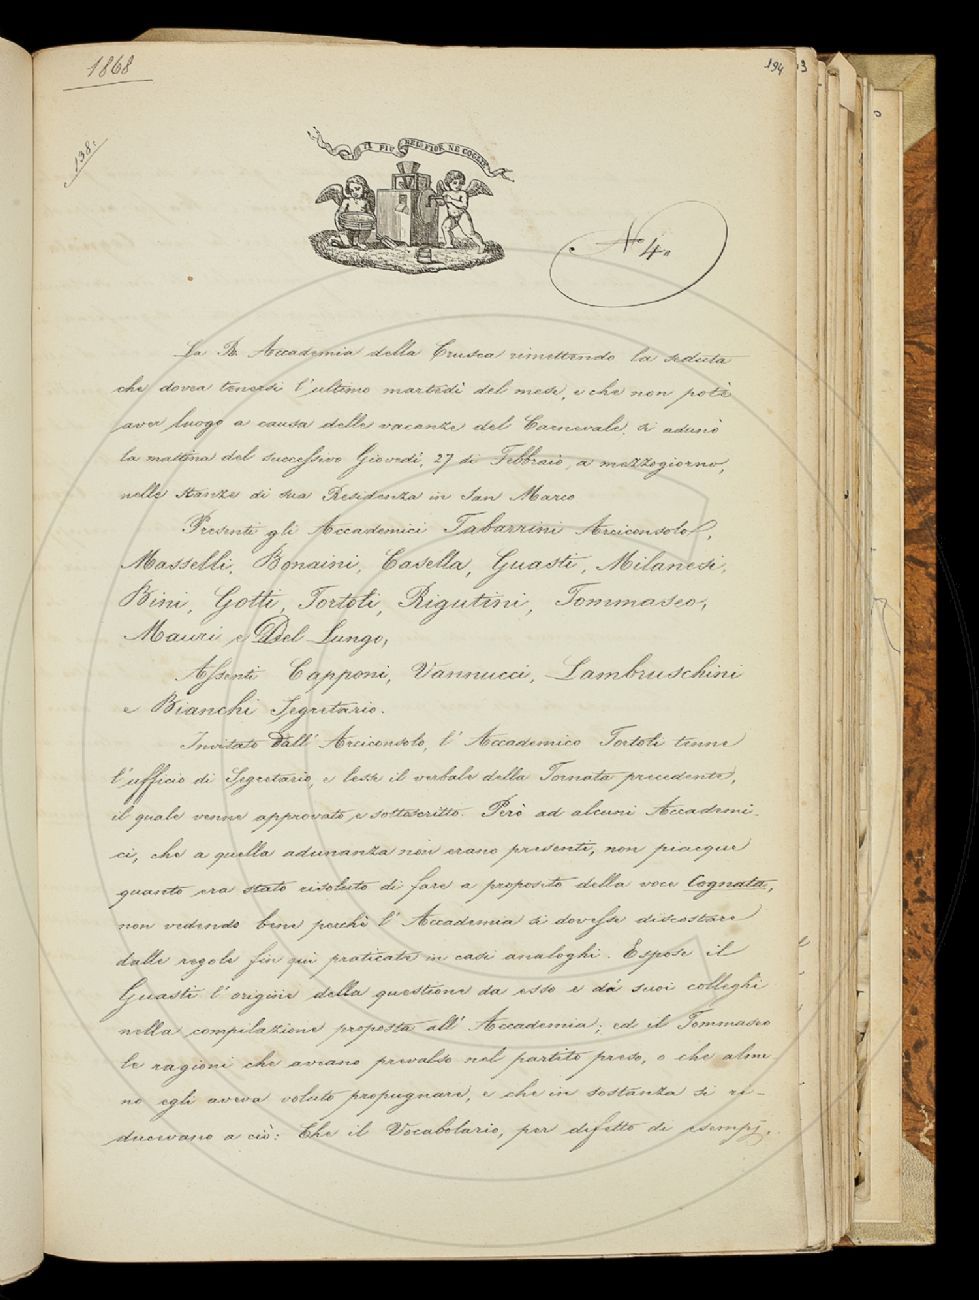 1868
194
138.
IL PIÙ BEL FIOR NE COGLIE
N.º 4.º
La R. Accademia della Crusca rimettendo la seduta
che dovea tenersi l'ultimo martedì del mese, e che non potè
aver luogo a causa delle vacanze del Carnevale, si adunò
la mattina del successivo Giovedì, 27 di Febbraio, a mezzogiorno,
nelle stanze di sua Residenza in San Marco
Presenti gli Accademici Tabarrini Arciconsolo,
Masselli, Bonaini, Casella, Guasti, Milanesi,
Bini, Gotti, Tortoli, Rigutini, Tommaseo,
Mauri e Del Lungo,
Assenti Capponi, Vannucci, Lambruschini
e Bianchi Segretario.
Invitato dall' Arciconsolo, l' Accademico Tortoli tenne
l'ufficio di Segretario, e lesse il verbale della Tornata precedente,
il quale venne approvato e sottoscritto. Però ad alcuni Accademi-
ci, che a quella adunanza non erano presenti, non piacque
quanto era stato risoluto di fare a proposito della voce Cognata,
non vedendo bene perchè l' Accademia si dovesse discostare
dalle regole fin qui praticate in casi analoghi. Espose il
Guasti l'origine della questione da esso e da' suoi colleghi
nella compilazione proposta all' Accademia; ed il Tommaseo
le ragioni che aveano prevalso nel partito preso, o che alme-
no egli aveva voluto propugnare, e che in sostanza si ri-
ducevano a ciò: Che il Vocabolario, per difetto di esempj,